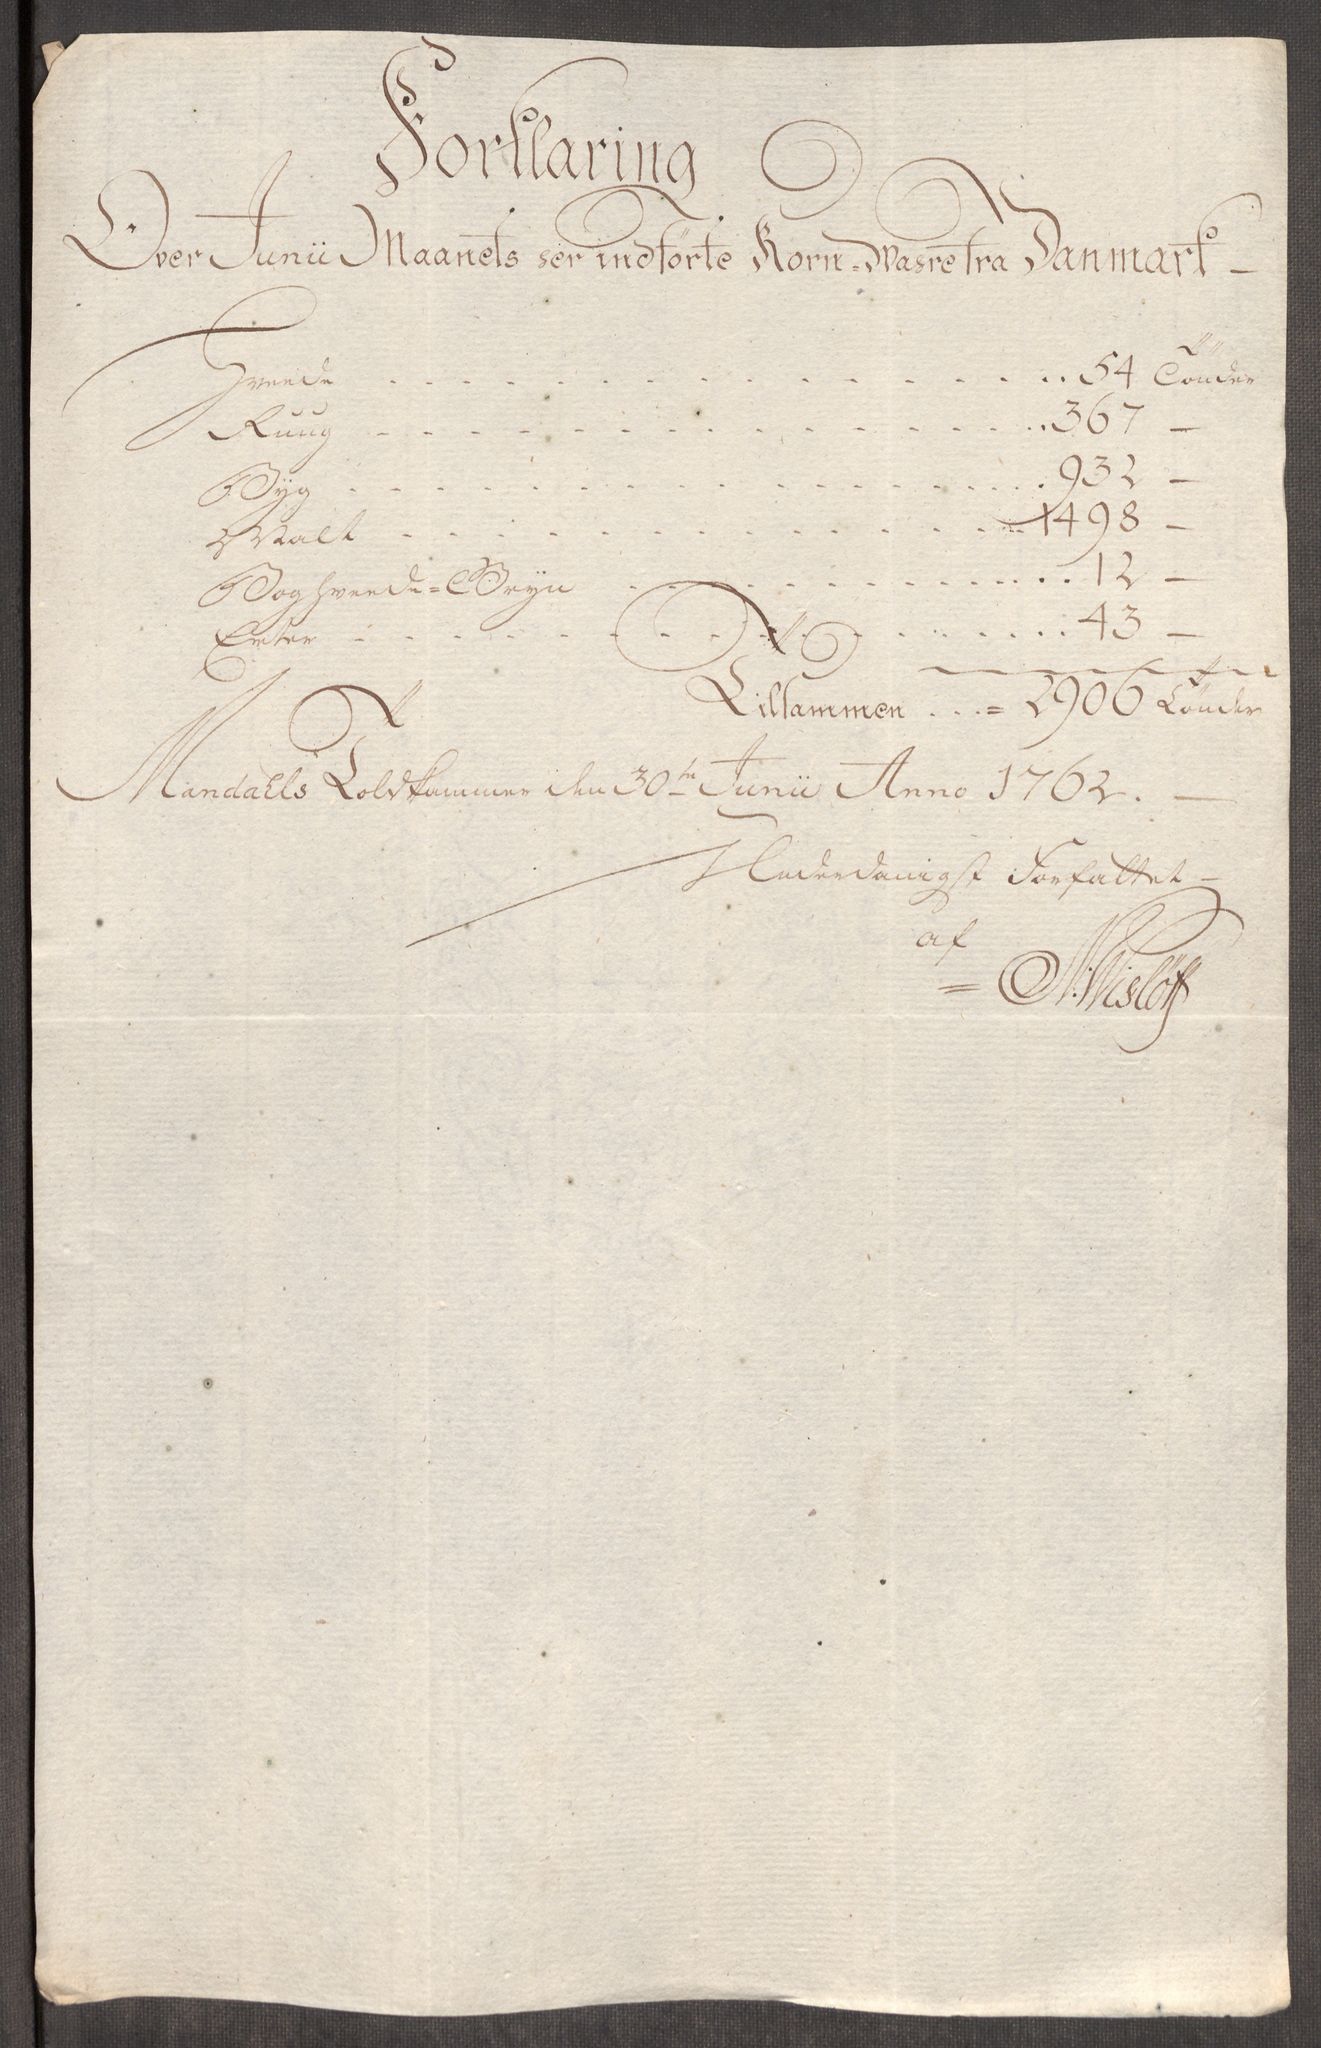 Forklaring
Over Junii Maanets her indförte Korn-Wahre fra Danmark -
Hveede . . . 54 Tönder
Ruug . . . 367 -
Byg . . . 932 -
Malt . . . 1498 -
Boghveede=Gryn . . . 12 -
Erter . . . 43 -
Tilsammen . . = 2906 Tönder
Mandahls Toldkammer den 30te Junii Anno 1762. -
Underdanigst Forfattet -
af
= N: Wislöff